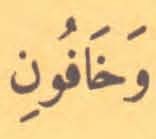 وَخَافُونِ